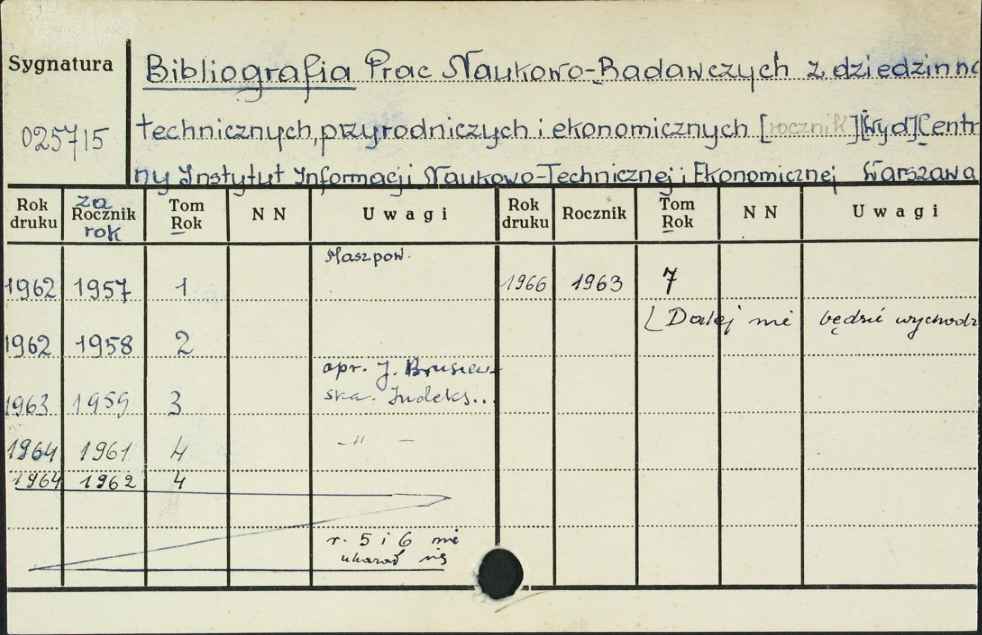 Sygnatura
025715
Bibliografia Prac Naukowo-Badawczych z dziedzin nc
technicznych, przyrodniczych i ekonomicznych [rocznik] [Wyd] Centr
ny Instytut Informacji Naukowo-Technicznej i Ekonomicznej Warszawa
Rok druku za Rocznik rok Tom Rok N N Uwagi Rok druku Rocznik Tom Rok N N Uwagi
Maszpow.
1962 1957 1 1966 1963 7
[Dalej nie będzie wychodz
1962 1958 2
opr. J. Brusiew-
1963 1959 3 ska. Indeks...
1964 1961 4 -"-
1964 1962 4
r. 5 i 6 nie
ukazał się